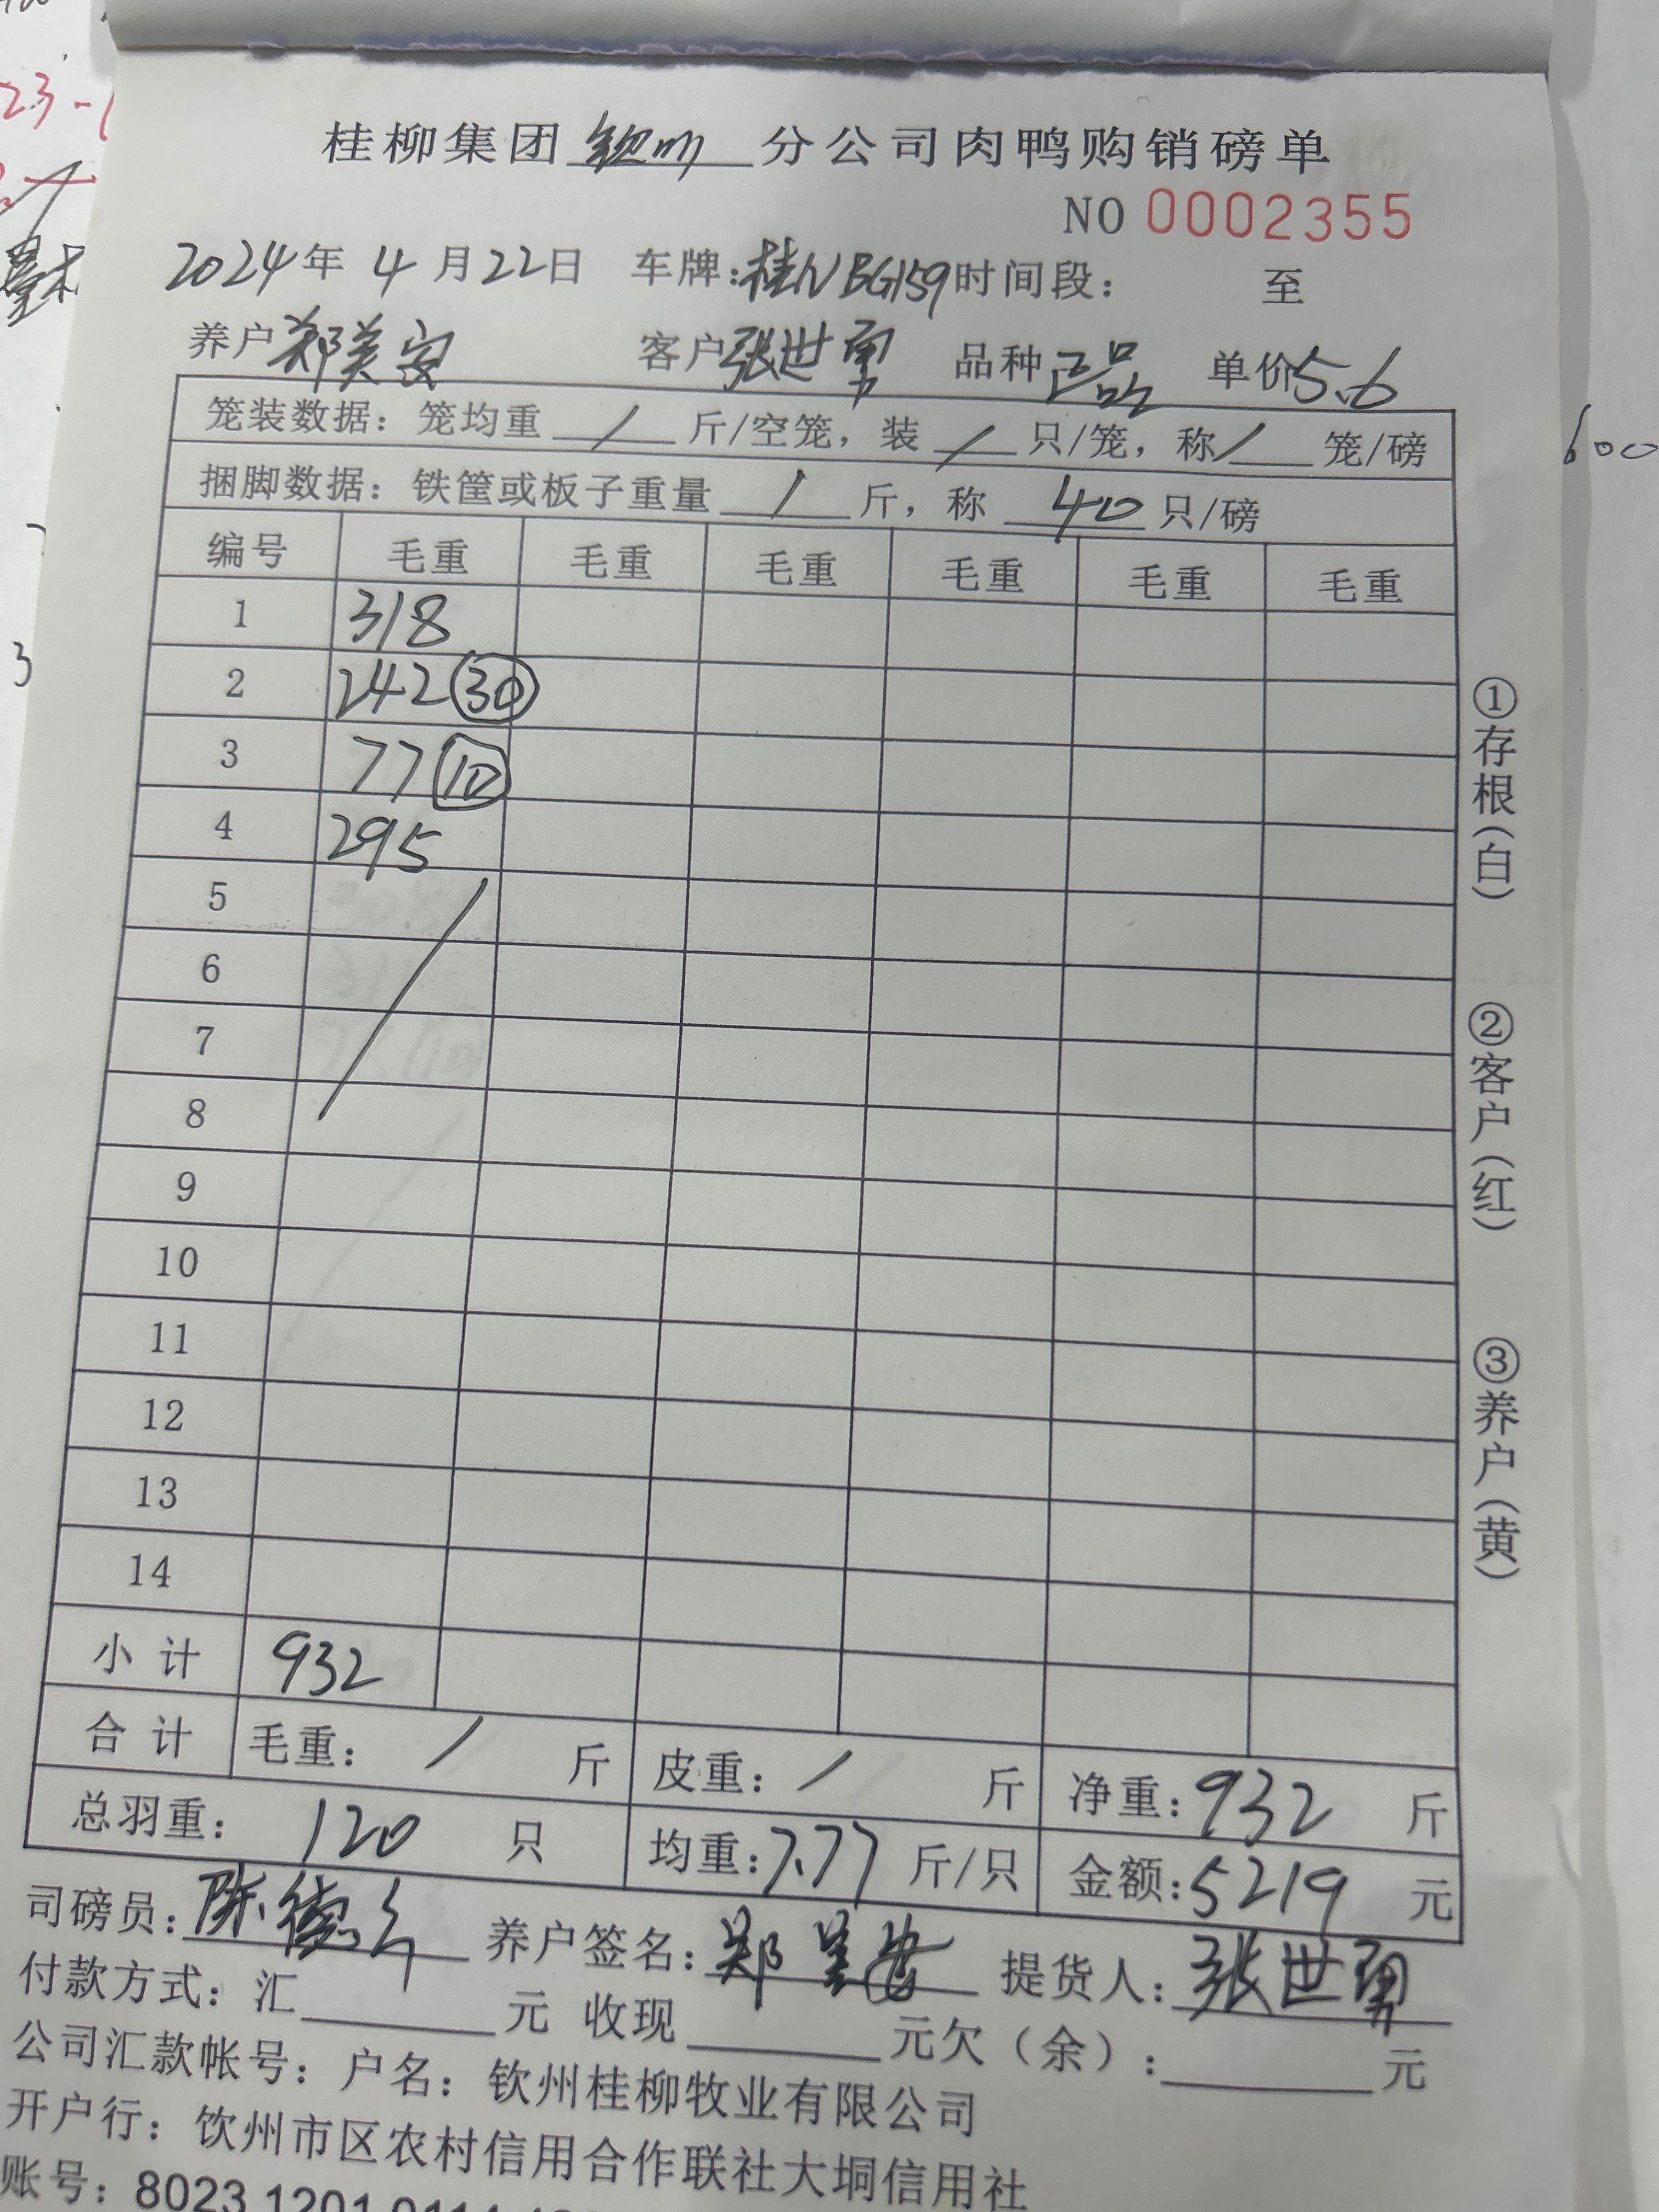 桂柳集团 钦州 分公司肉鸭购销磅单
NO 0002355
2024年 4 月22日 车牌:桂NBG159 时间段: 至
养户 郑美安 客户 张世勇 品种 正品 单价5.6
笼装数据: 笼均重 / 斤/空笼, 装 / 只/笼, 称 / 笼/磅
捆脚数据: 铁筐或板子重量 / 斤, 称 40 只/磅
编号 毛重 毛重 毛重 毛重 毛重 毛重
1 318
2 242 30
3 77 10
4 295
5
6
7
8
9
10
11
12
13
14
小计 932
合计 毛重: / 斤 皮重: / 斤 净重: 932 斤
总羽重: 120 只 均重: 7.77 斤/只 金额: 5219 元
司磅员: 陈德 养户签名: 郑美安 提货人: 张世勇
付款方式: 汇 元 收现 元欠(余): 元
公司汇款帐号: 户名: 钦州桂柳牧业有限公司
开户行: 钦州市区农村信用合作联社大垌信用社
账号: 8023 1201 0114
①存根(白)
②客户(红)
③养户(黄)
600